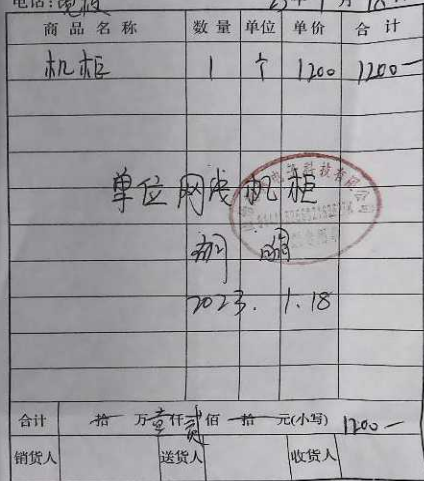 电话:电板 23年1月18
商品名称 数量 单位 单价 合计
机柜 1 个 1200 1200-
单位网线机柜
胡 明
2023.1.18
合计 拾 万壹仟贰佰 拾 元(小写) 1200-
销货人 送货人 收货人